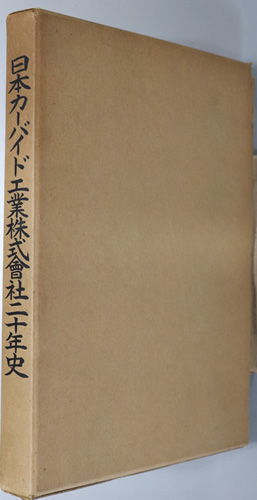 日本カーバイド工業株式會社二十年史